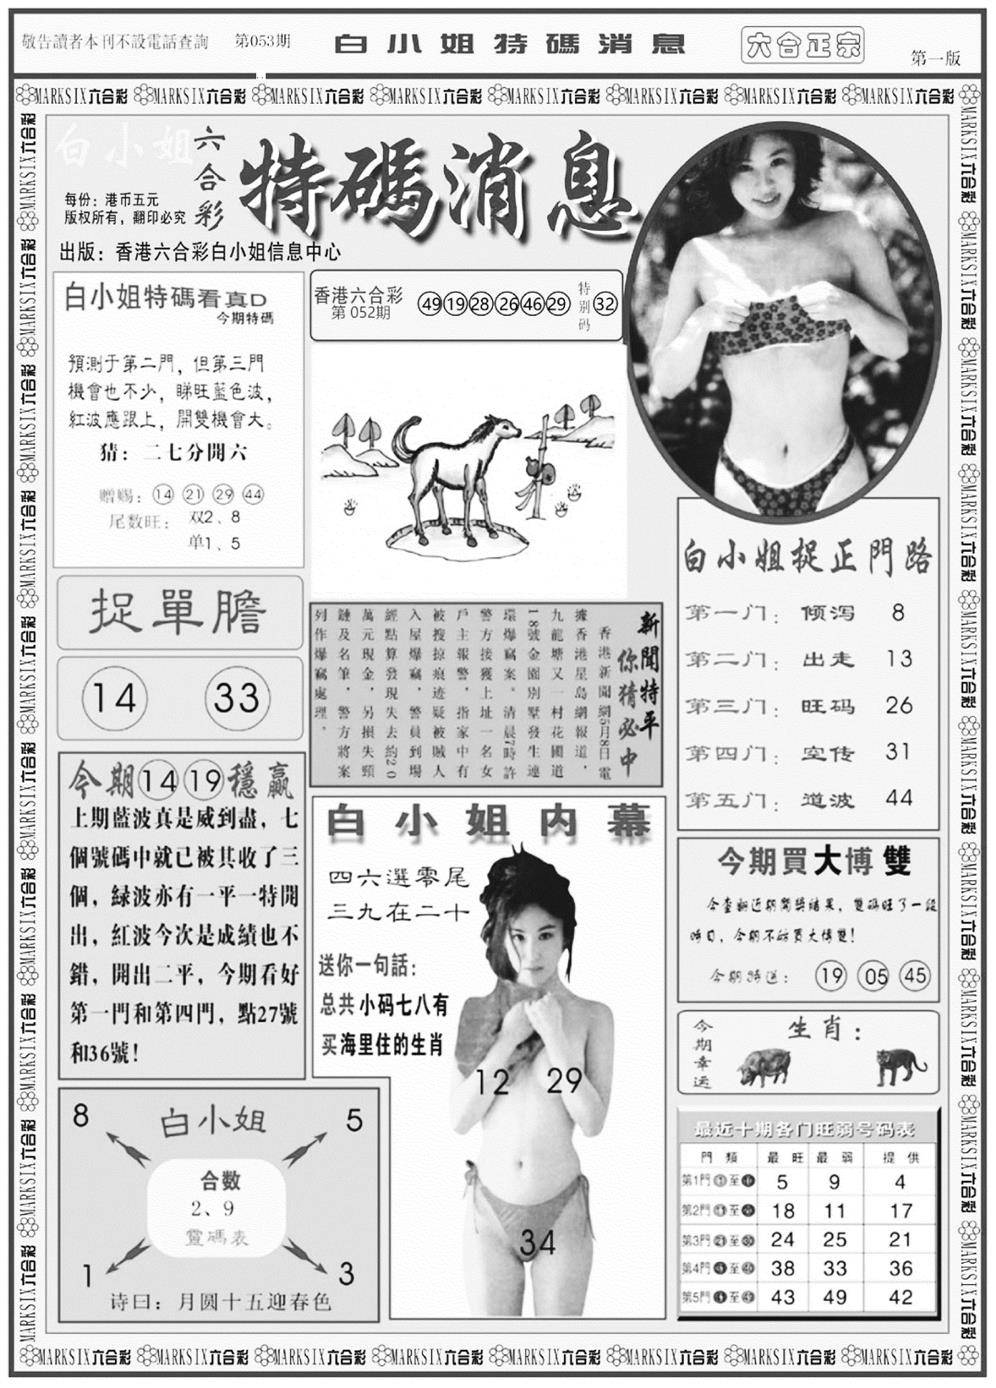 敬告讀者本刊不設電話查詢 第053期 白小姐特碼消息 六合正宗 第一版
MARKSIX六合彩 MARKSIX六合彩 MARKSIX六合彩 MARKSIX六合彩 MARKSIX六合彩 MARKSIX六合彩 MARKSIX六合彩 MARKSIX六合彩
白小姐 六合彩 特碼消息
每份：港币五元
版权所有，翻印必究
出版：香港六合彩白小姐信息中心
白小姐特碼看真D
今期特碼
預測于第二門，但第三門
機會也不少，睇旺藍色波，
紅波應跟上，開雙機會大。
猜：二七分開六
赠赐：14 21 29 44
尾数旺：双2、8
单1、5
香港六合彩
第 052期
49 19 28 26 46 29 特别码 32
捉單膽
14 33
新聞特平
你猜必中
香港新聞網5月8日電
據香港星島網報道，
九龍塘又一村花圃道
18號金園別墅發生連
環爆竊案。清晨7時許
警方接獲上址一名女
戶主報警，指家中有
被搜掠痕迹疑被贼人
入屋爆竊，警員到場
經點算發現失去約20
萬元現金，另損失頸
鏈及名筆，警方將案
列作爆竊處理。
白小姐捉正門路
第一门：倾泻 8
第二门：出走 13
第三门：旺码 26
第四门：空传 31
第五门：道波 44
今期 14 19 穩贏
上期藍波真是威到盡，七
個號碼中就已被其收了三
個，緑波亦有一平一特開
出，紅波今次是成績也不
錯，開出二平，今期看好
第一門和第四門，點27號
和36號！
白小姐内幕
四六選零尾
三九在二十
送你一句話：
总共小码七八有
买海里住的生肖
12 29
34
今期買大博雙
今查翻近期開獎結果，雙碼旺了一段
時日，今期不妨買大博雙！
今期特送：19 05 45
今期幸运
生肖：
8 白小姐 5
合数
2、9
靈碼表
1 3
诗曰：月圆十五迎春色
最近十期各门旺弱号码表
門類 最旺 最弱 提供
第1門 至 5 9 4
第2門 至 18 11 17
第3門 至 24 25 21
第4門 至 38 33 36
第5門 至 43 49 42
MARKSIX六合彩 MARKSIX六合彩 MARKSIX六合彩 MARKSIX六合彩 MARKSIX六合彩 MARKSIX六合彩 MARKSIX六合彩 MARKSIX六合彩